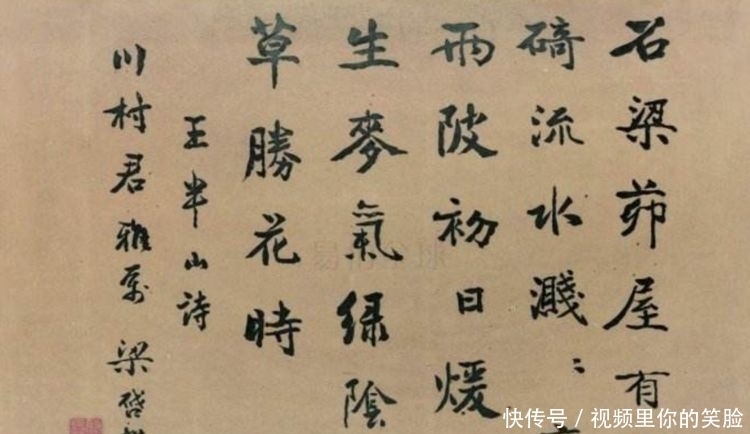 石梁茆屋有
碕流水濺〻
兩陂初日煖
生麥氣緑陰
草勝花時
王半山詩
川村君雅屬 梁啓
快传号 / 视频里你的笑脸